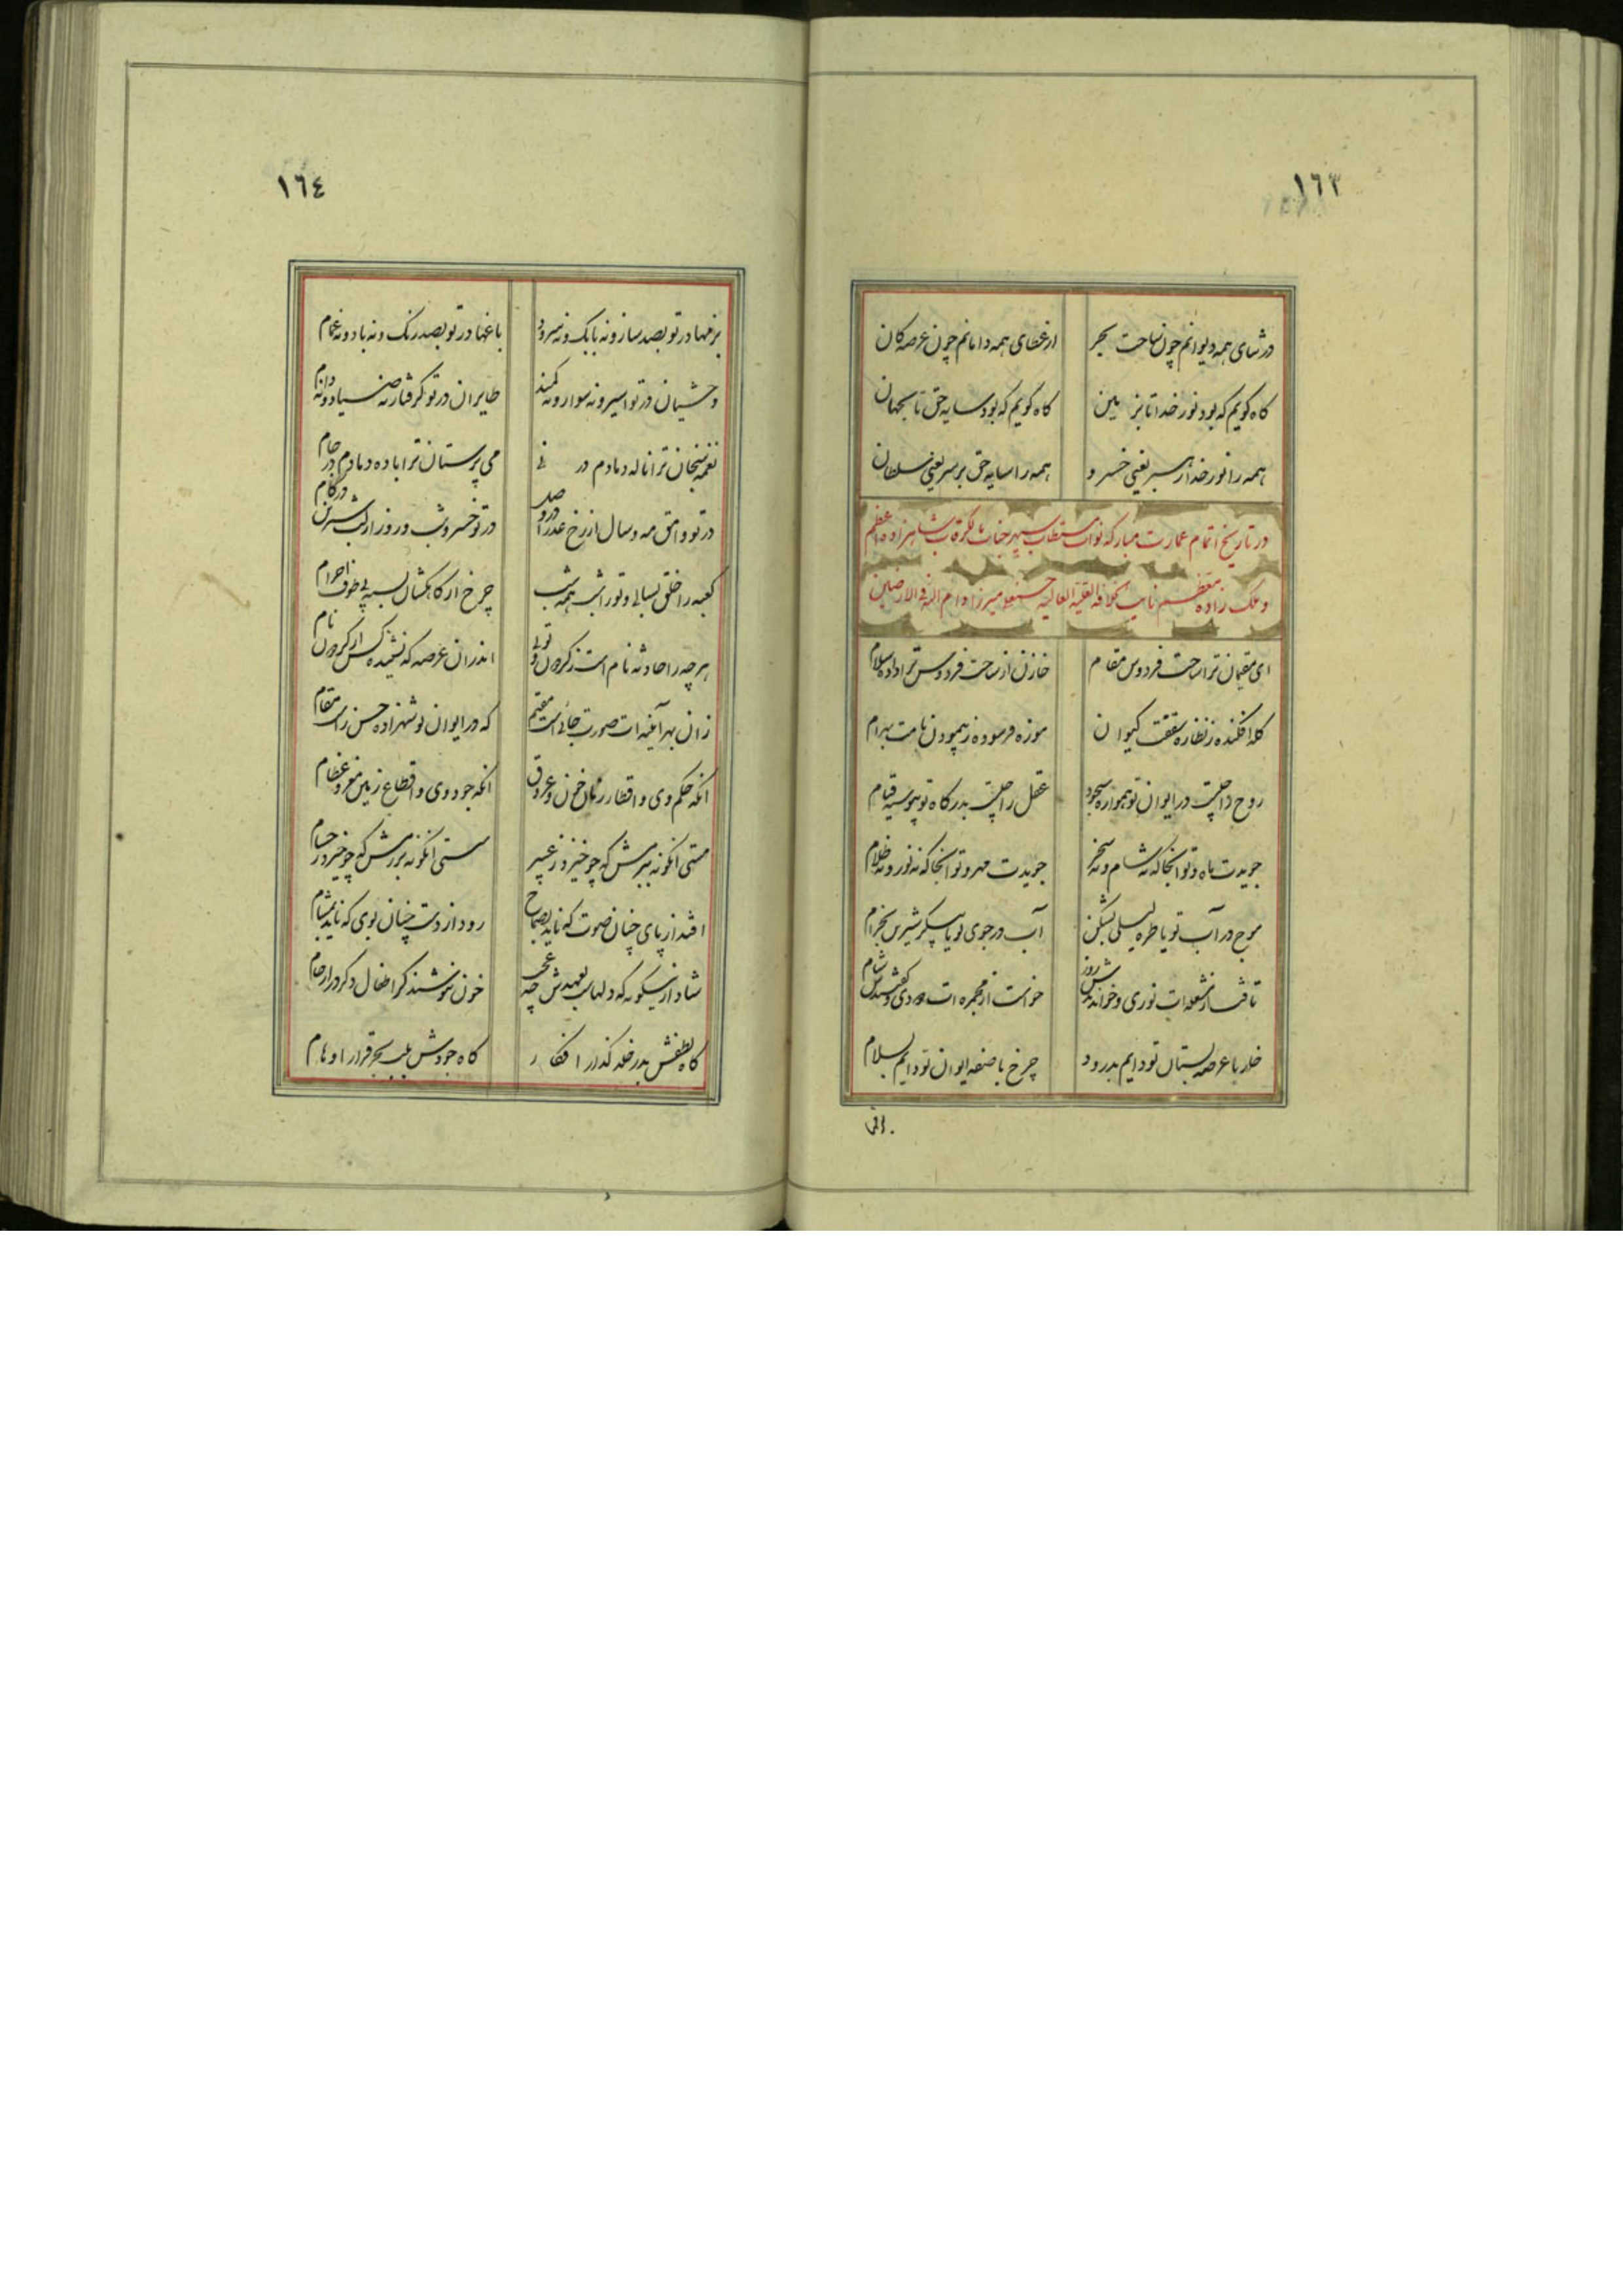 ١٦٣
در ثنای همه دیوانم چون ساحت بحر
از عطای همه دامانم چون عرصه کان
کاه کویم که بود نور خدا تا بزمین
کاه کویم که بود سایه حق تا بجهان
همه را نور خدا از سر یعنی خسرو
همه را سایه حق بر سر یعنی سلطان
در تاریخ اتمام عمارت مبارکه نواب مستطاب سپهر جناب شاهزاده اعظم
و ملک زاده معظم نایب میرزا دام
ای مقیمان ترا ساحت فردوس مقام
خازن از ساحت فردوس ترا داده سلام
کله افکنده ز نظاره سقفت کیوان
موزه فرسوده ز پیمودن بامت بهرام
روح را چیست در ایوان تو همواره سجود
عقل را چیست بدرکاه تو پیوسته قیام
جویدت ماه و تو آنجا که نه شام و نه سحر
جویدت مهر و تو آنجا که نه نور و نه ظلام
موج در آب تو یا طره لیلی بشکن
آب در جوی تو یا پیکر شیرین بخرام
تافت از شعله ات نوری و خواندندش روز
خواست از مجمره ات دودی و کفتندش شام
خلد با عرصه بستان تو دایم بدرود
چرخ با صفه ایوان تو دایم بسلام
١٦٤
بزمها در تو بصد ساز و نه بانک و نه سرود
باغها در تو بصد رنک و نه باد و نه غمام
وحشیان در تو اسیر و نه سوار و نه کمند
طایران در تو کرفتار نه صیاد و نه دام
نغمه سنجان ترا ناله دمادم در نی
می پرستان ترا باده دمادم در جام
در تو وامق مه و سال از رخ عذرا
در تو خسرو شب و روز از لب شیرین در کام
کعبه را خلقی بسالی و تو را شب همه شب
چرخ از کاهکشان بسته پی طوف احرام
هر چه را حادثه نام است ز کردون تو
اندران عرصه که نشنیده کس از کردون نام
زان بهر آینه ات صورت جانی است مقیم
که در ایوان تو شهزاده حسن راست مقام
آنکه حکم وی و اقطار زمان خون و عروق
آنکه جود وی و اقطاع زمین مغز و عظام
مستی آنکونه ببزمش که چو خیزد ز عبیر
مستی آنکونه برزمش که چو خیزد ز حسام
افتد از پای چنان صوت که ناید بصماخ
رود از دست چنان بوی که ناید بمشام
شاد ازینکونه که دلهاست بعهدش چه عجب
خون ننوشند کر اطفال دکر در ارحام
کاه لطفش بدر خلد کذار افکار
کاه جودش بلب بحر قرار اوهام